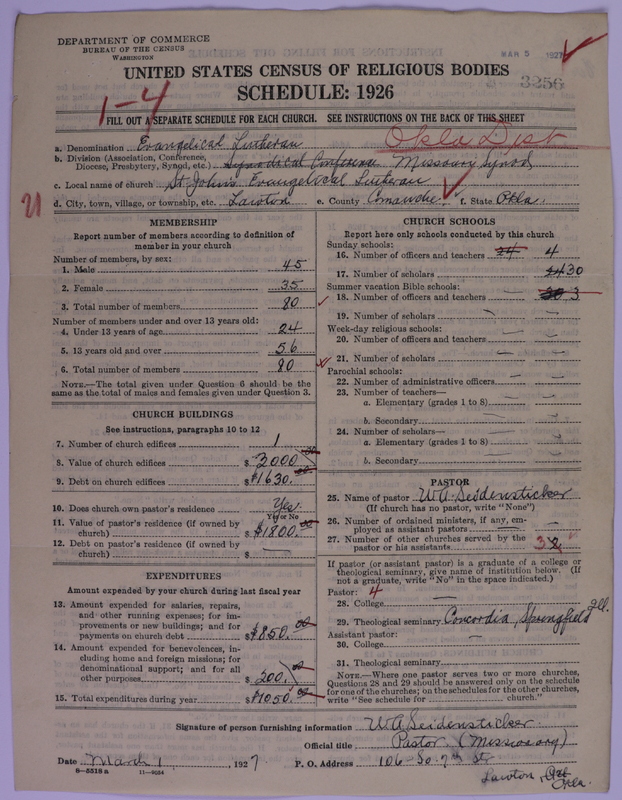 DEPARTMENT OF COMMERCE
BUREAU OF THE CENSUS
WASHINGTON
MAR 5 1927
3256
UNITED STATES CENSUS OF RELIGIOUS BODIES
SCHEDULE: 1926
1-4
FILL OUT A SEPARATE SCHEDULE FOR EACH CHURCH. SEE INSTRUCTIONS ON THE BACK OF THIS SHEET
a. Denomination Evangelical Lutheran Okla Dist
b. Division (Association, Conference, Diocese, Presbytery, Synod, etc.) Synodical Conference Missoury Synod
c. Local name of church St. John's Evangelical Lutheran
d. City, town, village, or township, etc. Lawton e. County Comanche f. State Okla.
21
MEMBERSHIP
Report number of members according to definition of
member in your church
Number of members, by sex:
1. Male 45
2. Female 35
3. Total number of members 80
Number of members under and over 13 years old:
4. Under 13 years of age 24
5. 13 years old and over 56
6. Total number of members 80
NOTE.—The total given under Question 6 should be the
same as the total of males and females given under Question 3.
CHURCH BUILDINGS
See instructions, paragraphs 10 to 12
7. Number of church edifices 1
8. Value of church edifices $ 3000.00
9. Debt on church edifices $ $1630.00
10. Does church own pastor's residence Yes.
Yes or No
11. Value of pastor's residence (if owned by
church) $ $1800.00
12. Debt on pastor's residence (if owned by
church) $ —
EXPENDITURES
Amount expended by your church during last fiscal year
13. Amount expended for salaries, repairs,
and other running expenses; for im-
provements or new buildings; and for
payments on church debt $ $850.00
14. Amount expended for benevolences, in-
cluding home and foreign missions; for
denominational support; and for all
other purposes $ 200.00
15. Total expenditures during year $ $1050.00
CHURCH SCHOOLS
Report here only schools conducted by this church
Sunday schools:
16. Number of officers and teachers 24 4
17. Number of scholars 24 30
Summer vacation Bible schools:
18. Number of officers and teachers 30 3
19. Number of scholars
Week-day religious schools:
20. Number of officers and teachers —
21. Number of scholars —
Parochial schools:
22. Number of administrative officers —
23. Number of teachers—
a. Elementary (grades 1 to 8) —
b. Secondary —
24. Number of scholars—
a. Elementary (grades 1 to 8) —
b. Secondary —
PASTOR
25. Name of pastor W.A. Seidensticker
(If church has no pastor, write "None")
26. Number of ordained ministers, if any, em-
ployed as assistant pastors —
27. Number of other churches served by the
pastor or his assistants 3 2
If pastor (or assistant pastor) is a graduate of a college or
theological seminary, give name of institution below. (If
not a graduate, write "No" in the space indicated.)
Pastor: 4
28. College —
29. Theological seminary Concordia, Springfield Ill.
Assistant pastor:
30. College —
31. Theological seminary
NOTE.—Where one pastor serves two or more churches,
Questions 28 and 29 should be answered only on the schedule
for one of the churches; on the schedules for the other churches,
write "See schedule for church."
Signature of person furnishing information W A Seidensticker
Official title Pastor (Missionary)
Date March 1, 1927 P. O. Address 106 - So. 7th St
8-5518 a 11-9054
Lawton, Okla.